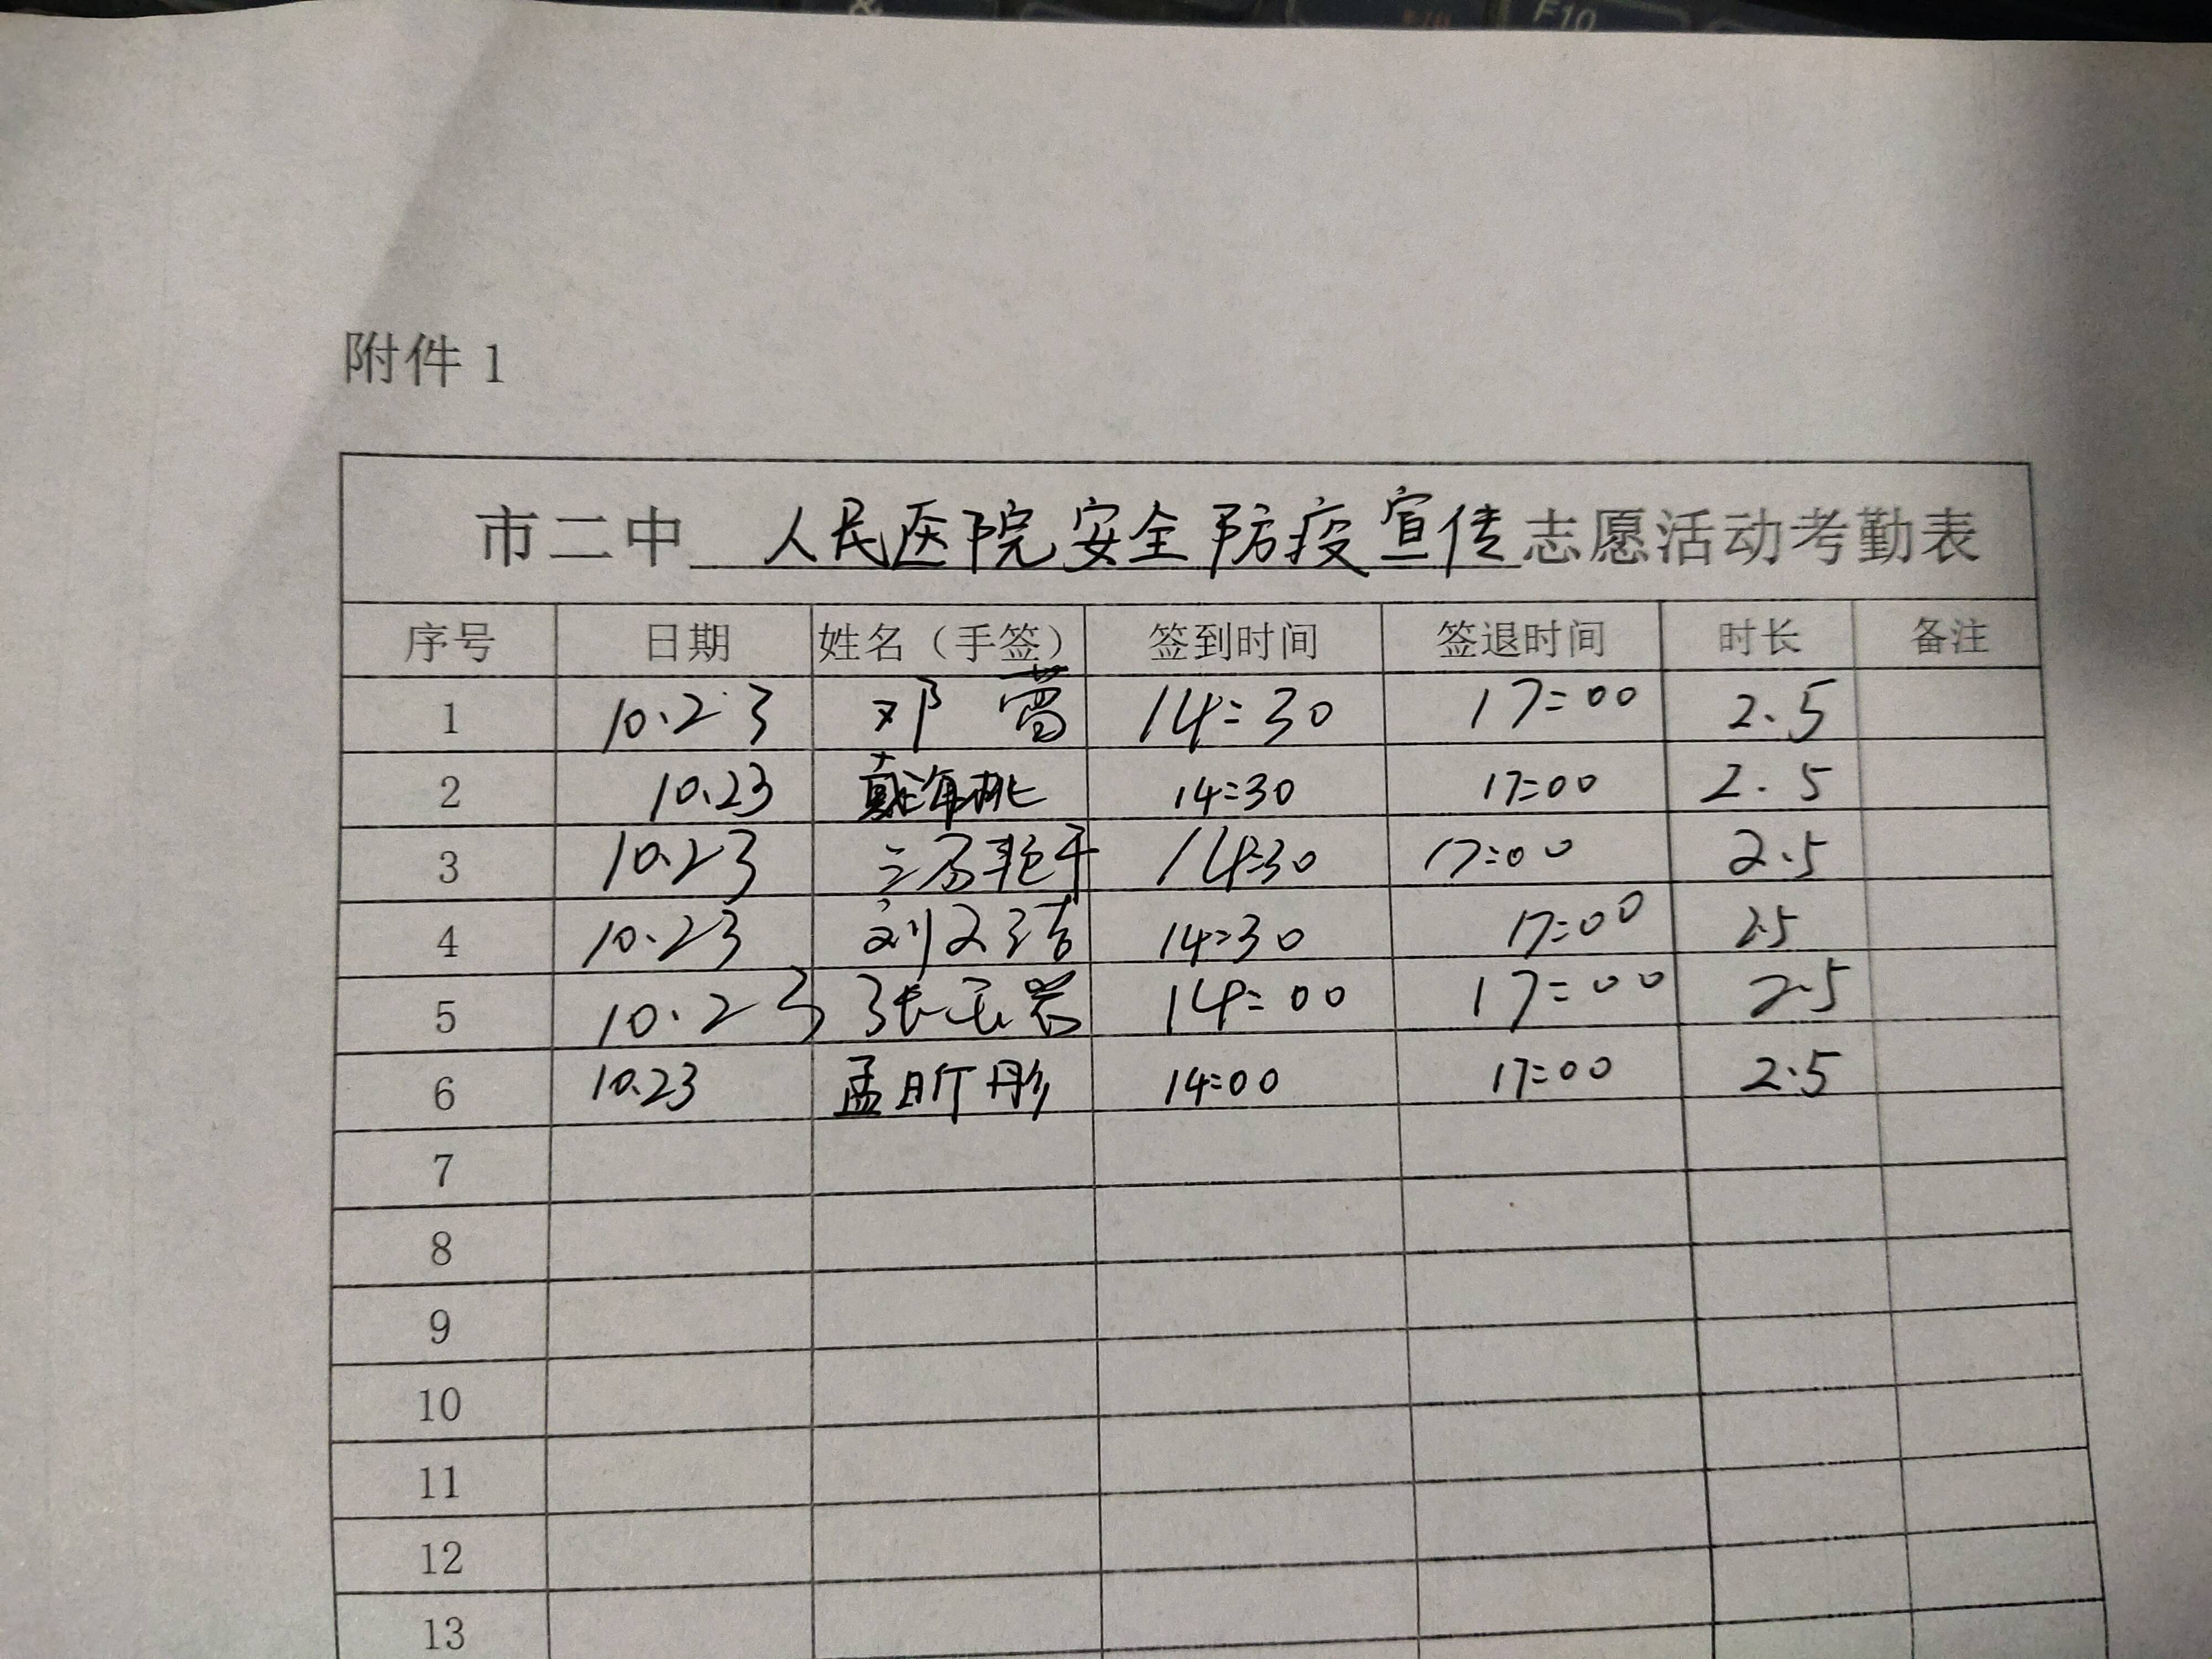 F10
附件 1
市二中 人民医院安全防疫宣传 志愿活动考勤表
序号 日期 姓名（手签） 签到时间 签退时间 时长 备注
1 10.23 邓 14:30 17:00 2.5
2 10.23 戴海桃 14:30 17:00 2.5
3 10.23 14:30 17:00 2.5
4 10.23 刘文洁 14:30 17:00 2.5
5 10.23 张 14:00 17:00 2.5
6 10.23 孟昕彤 14:00 17:00 2.5
7
8
9
10
11
12
13